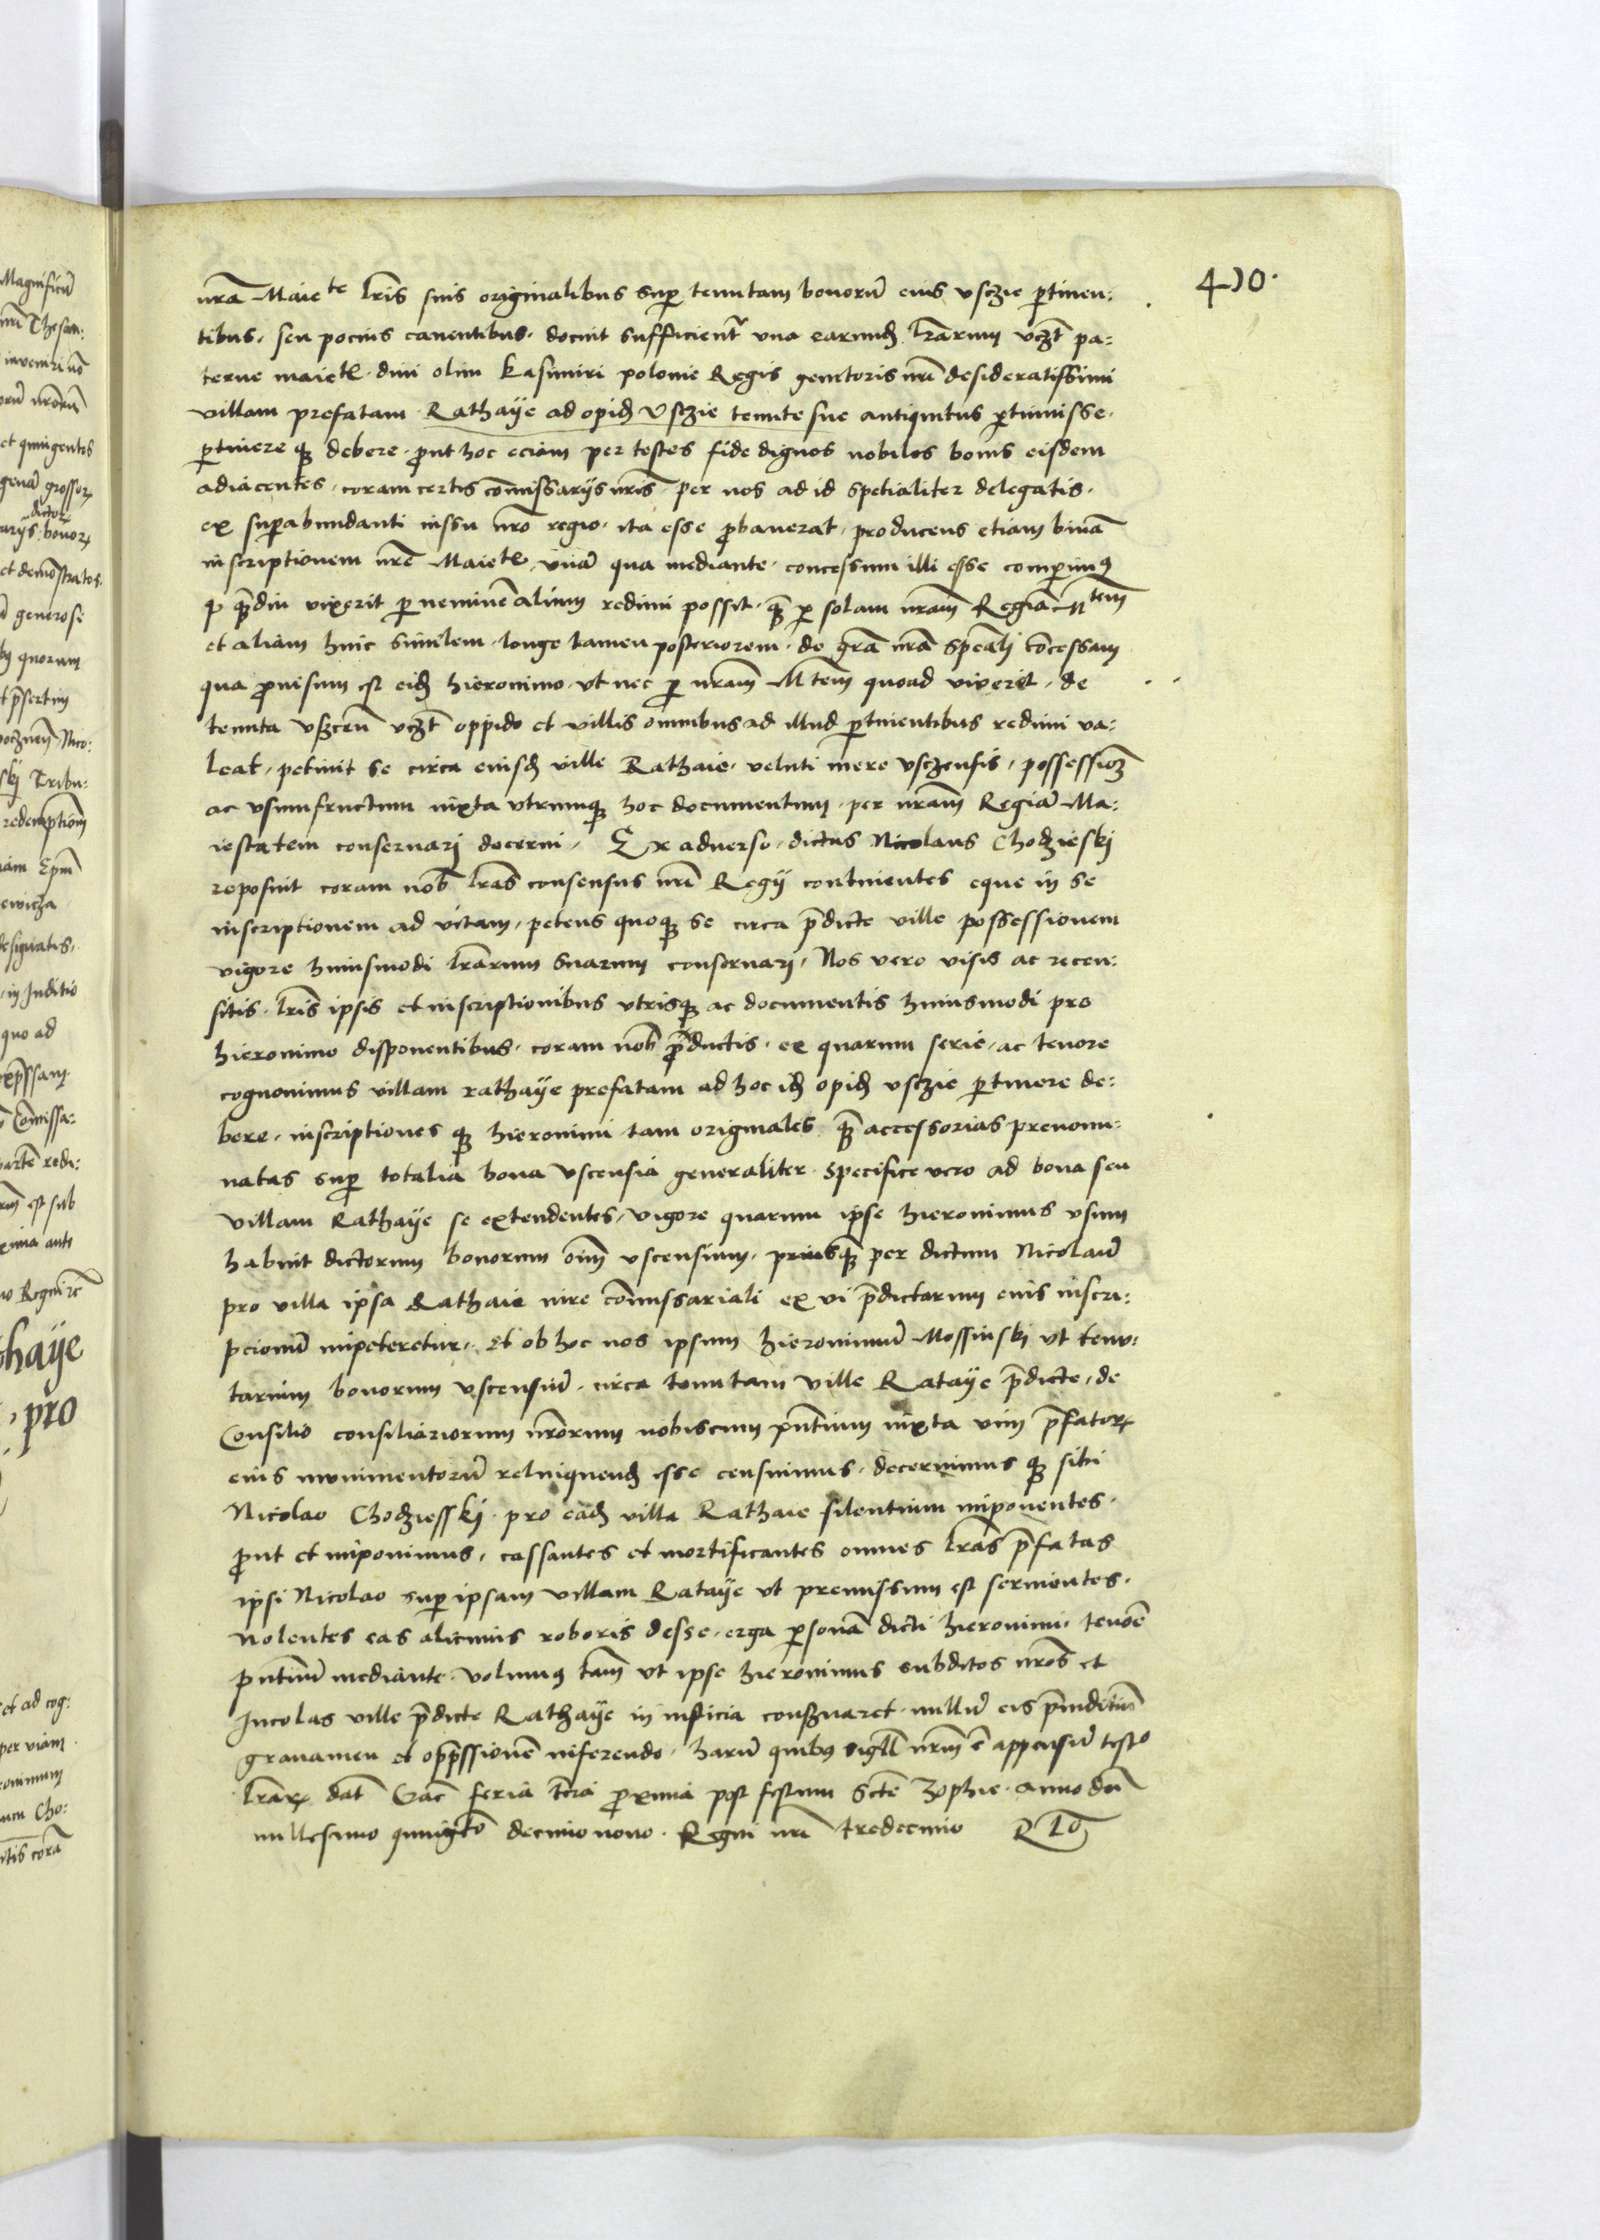 410.
nrã Maiete lris suis originalibus sup tenutam bonorũ eius vsczie ptinen:
tibus, seu pocius canentibus, docuit sufficient vna earund lrarum vczt pa:
terne maiete diui olim Kasimiri polonie Regis genitoris nri desideratissimi
villam prefatam Rathaye ad opid Vsczie tenute sue antiquitus ptinuisse,
ptinere q debere, prout hoc eciam per testes fide dignos nobiles bonis eisdem
adiacentes, coram certis comissarijs nris per nos ad id spetialiter delegatis,
ex supabundanti iussu nro regio, ita esse probauerat, producens etiam binã
inscriptionem nre Maiete, vnã qua mediante, concessum illi esse comperimus
q qdiu vixerit p neminẽ alium redimi possit, q p solam nram Regiã Mtem
et aliam huic similem longe tamen posteriorem, de gra nra speali concessam
qua prouisum est eid hieronimo, vt nec p nram Mtem quoad vixerit, de
tenuta vsceñ vczt oppido et villis omnibus ad illud ptinentibus redimi va:
leat, petiuit se circa eiusd ville Rathaie, veluti mere vsczensis, possession
ac vsumfructum iuxta vtrumq hoc documentum, per nram Regiã Ma:
iestatem conseruari decerni, Ex aduerso, dictus Nicolaus Chodzieski
reposuit coram nob lras consensus nri Regij continentes eque in se
inscriptionem ad vitam, petens quoq se circa pdicte ville possessionem
vigore huiusmodi lrarum suarum conseruari, Nos vero visis ac recen:
sitis lris ipsis et inscriptionibus vtrisq ac documentis huiusmodi pro
hieronimo disponentibus, coram nob productis, ex quarum serie, ac tenore
cognouimus villam rathaye prefatam ad hoc id opid vsczie ptinere de:
bere, inscriptiones q hieronimi tam originales q accessorias prenomi:
natas sup totalia bona vscensia generaliter, specifice vero ad bona seu
villam Rathaye se extendentes, vigore quarum ipse hieronimus vsum
habuit dictorum bonorum oim vscensium, priusq per dictum Nicolaũ
pro villa ipsa Rathaie iure comissariali ex vi pdictarum eius inscri:
pcionũ impeteretur, et ob hoc nos ipsum hieronimũ Mossinski vt tenu:
tarium bonorum vscensiũ, circa tenutam ville Rataye pdicte, de
Consilio consiliariorum nrorum nobiscum pntium iuxta vim pfator
eius munimentorũ relinquend esse censuimus, decernimus q sibi
Nicolao Chodziesski, pro ead villa Rathaie silentium imponentes,
prout et imponimus, cassantes et mortificantes omnes lras pfatas
ipsi Nicolao sup ipsam villam Rataye vt premissum est seruientes,
Nolentes eas alicuius roboris desse, erga psonã dicti hieronimi, tenoẽ
pntiũ mediante, volumus tam vt ipse hieronimus subditos nros et
Incolas ville pdicte Rathaye in iusticia conseruaret, nullũ eis preiuditiũ
grauamen et oppssionẽ inferendo, harũ quibus sigill nrm ẽ appensũ testo
lrar dat Crac feria tercia proxima post festum Scte Zophie, Anno dni
millesimo quingto decimo nono, Regni nri tredecimo